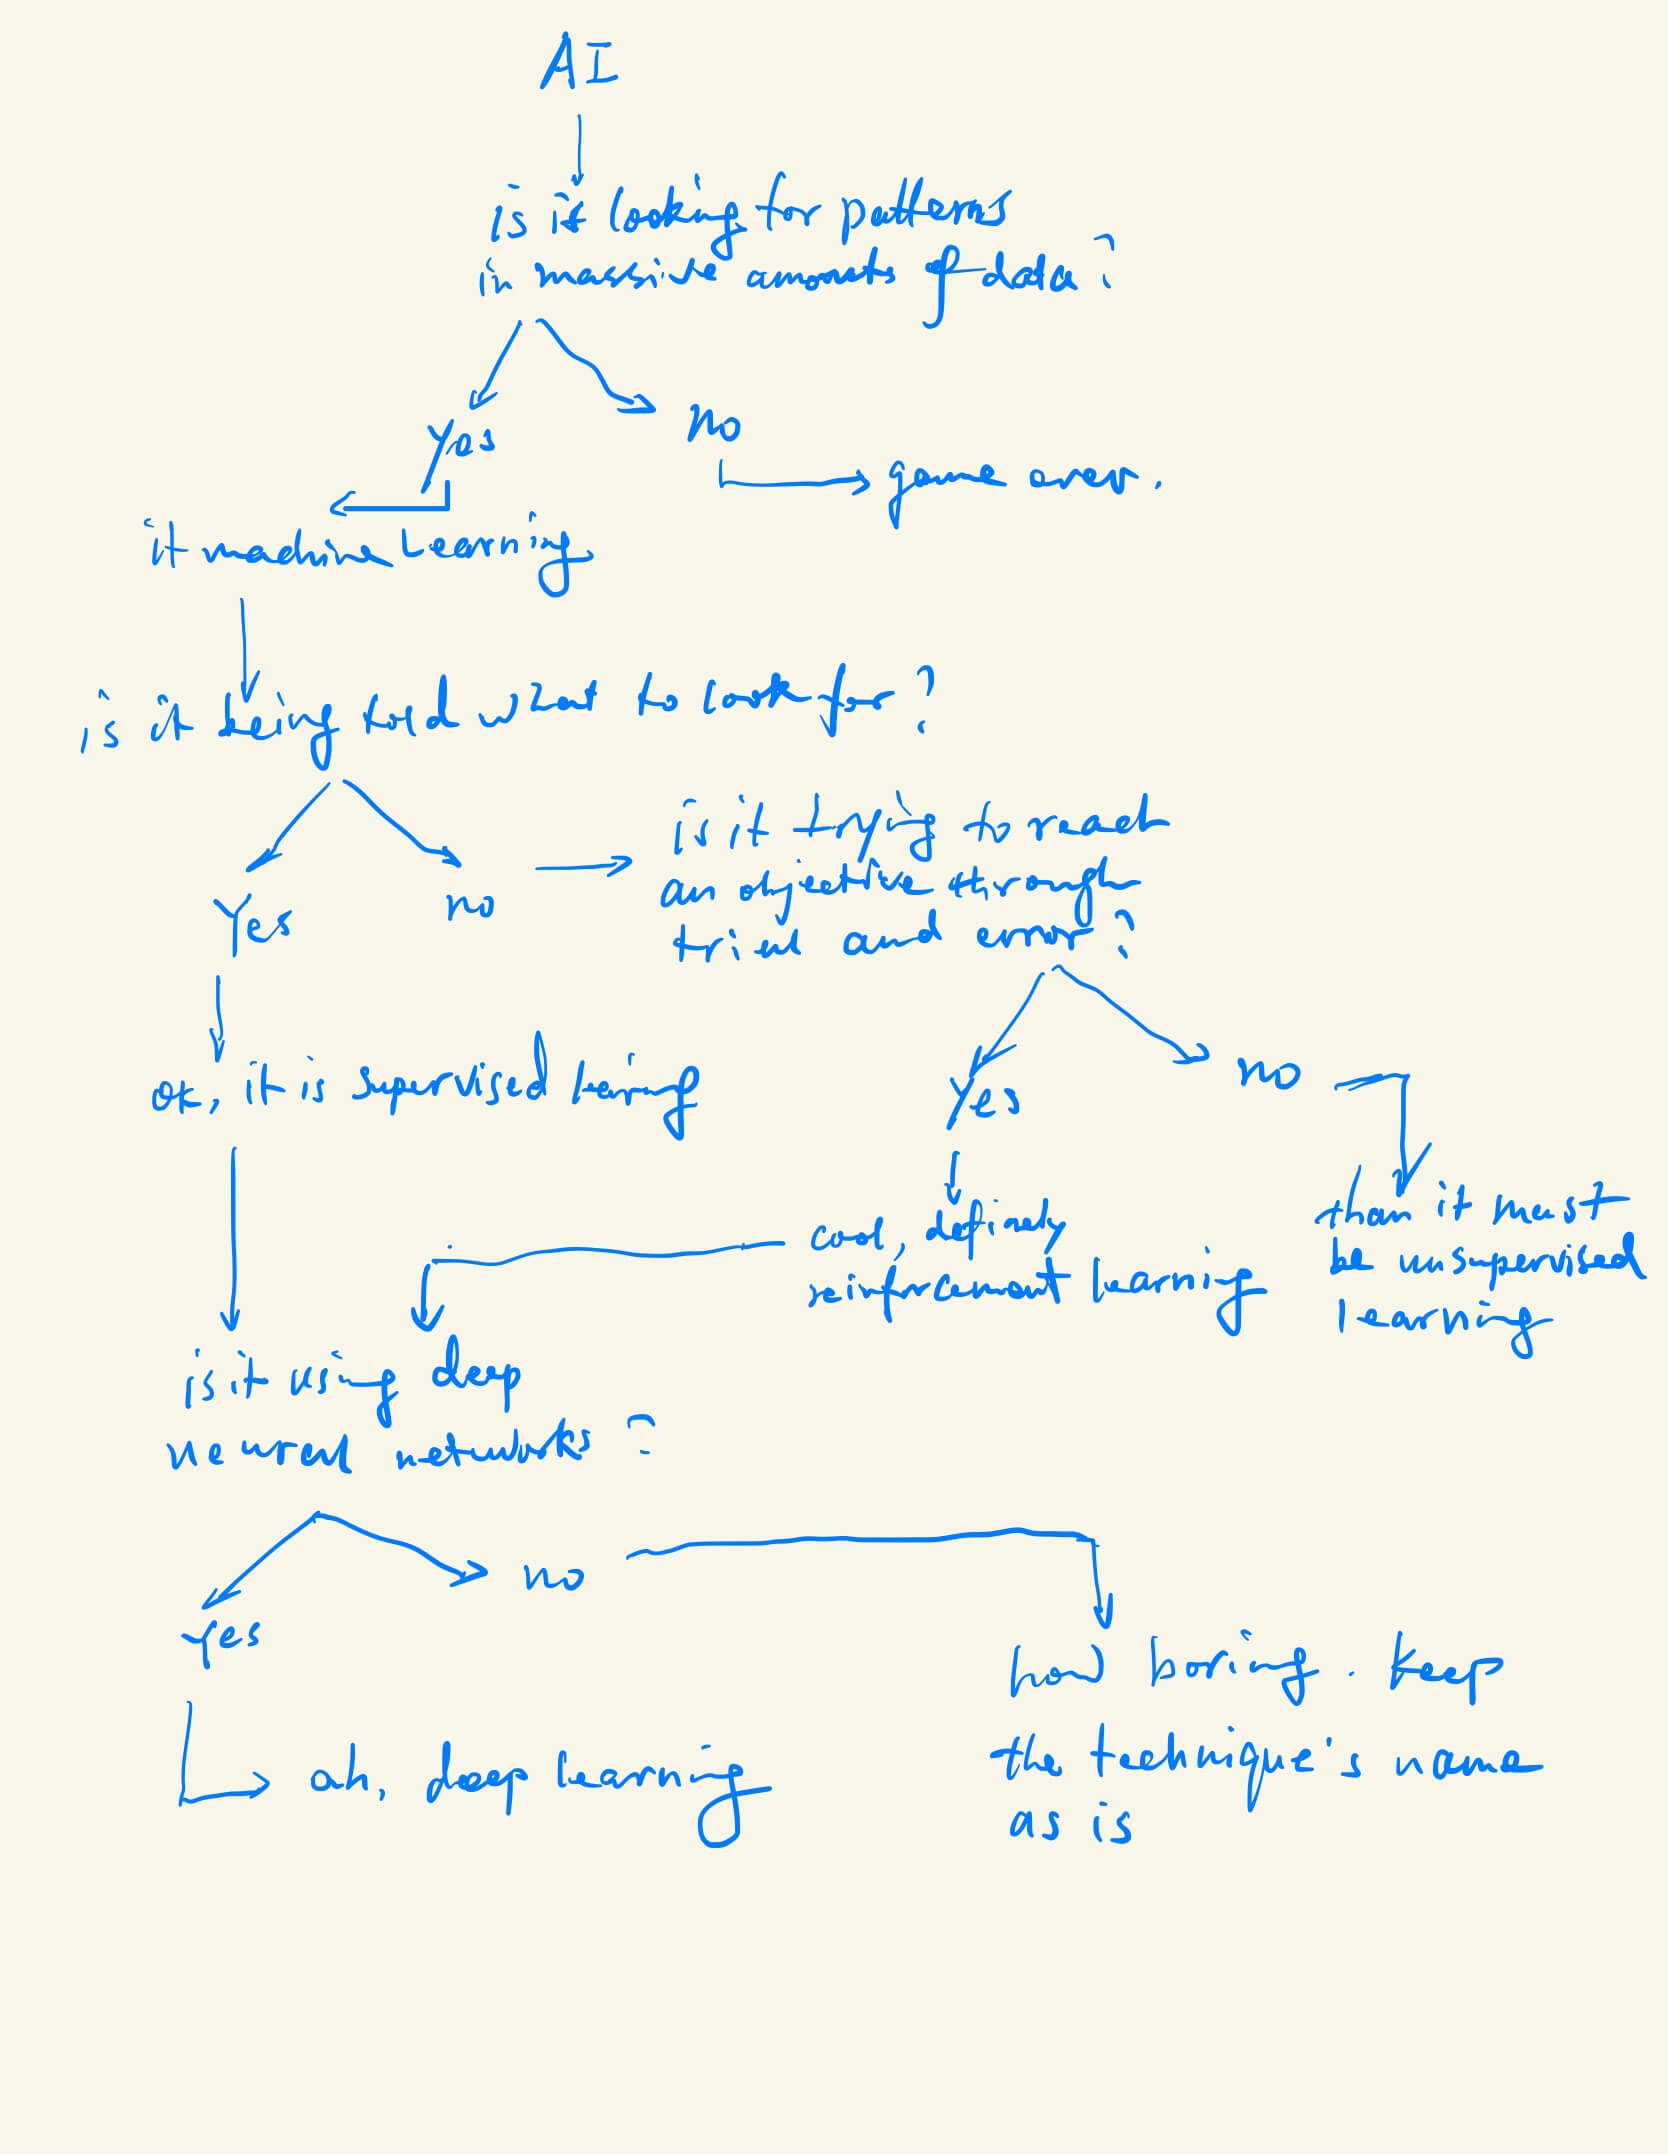 AI
is it looking for patterns
in massive amounts of data?
Yes
no
game over.
it machine Learning
is it being told what to look for?
Yes
no
is it trying to reach
an objective through
trial and error?
ok, it is supervised learing
Yes
no
cool, definely
reinforcement learning
than it must
be unsupervised
learning
is it using deep
neural networks?
yes
no
ah, deep learning
how boring. keep
the technique's name
as is